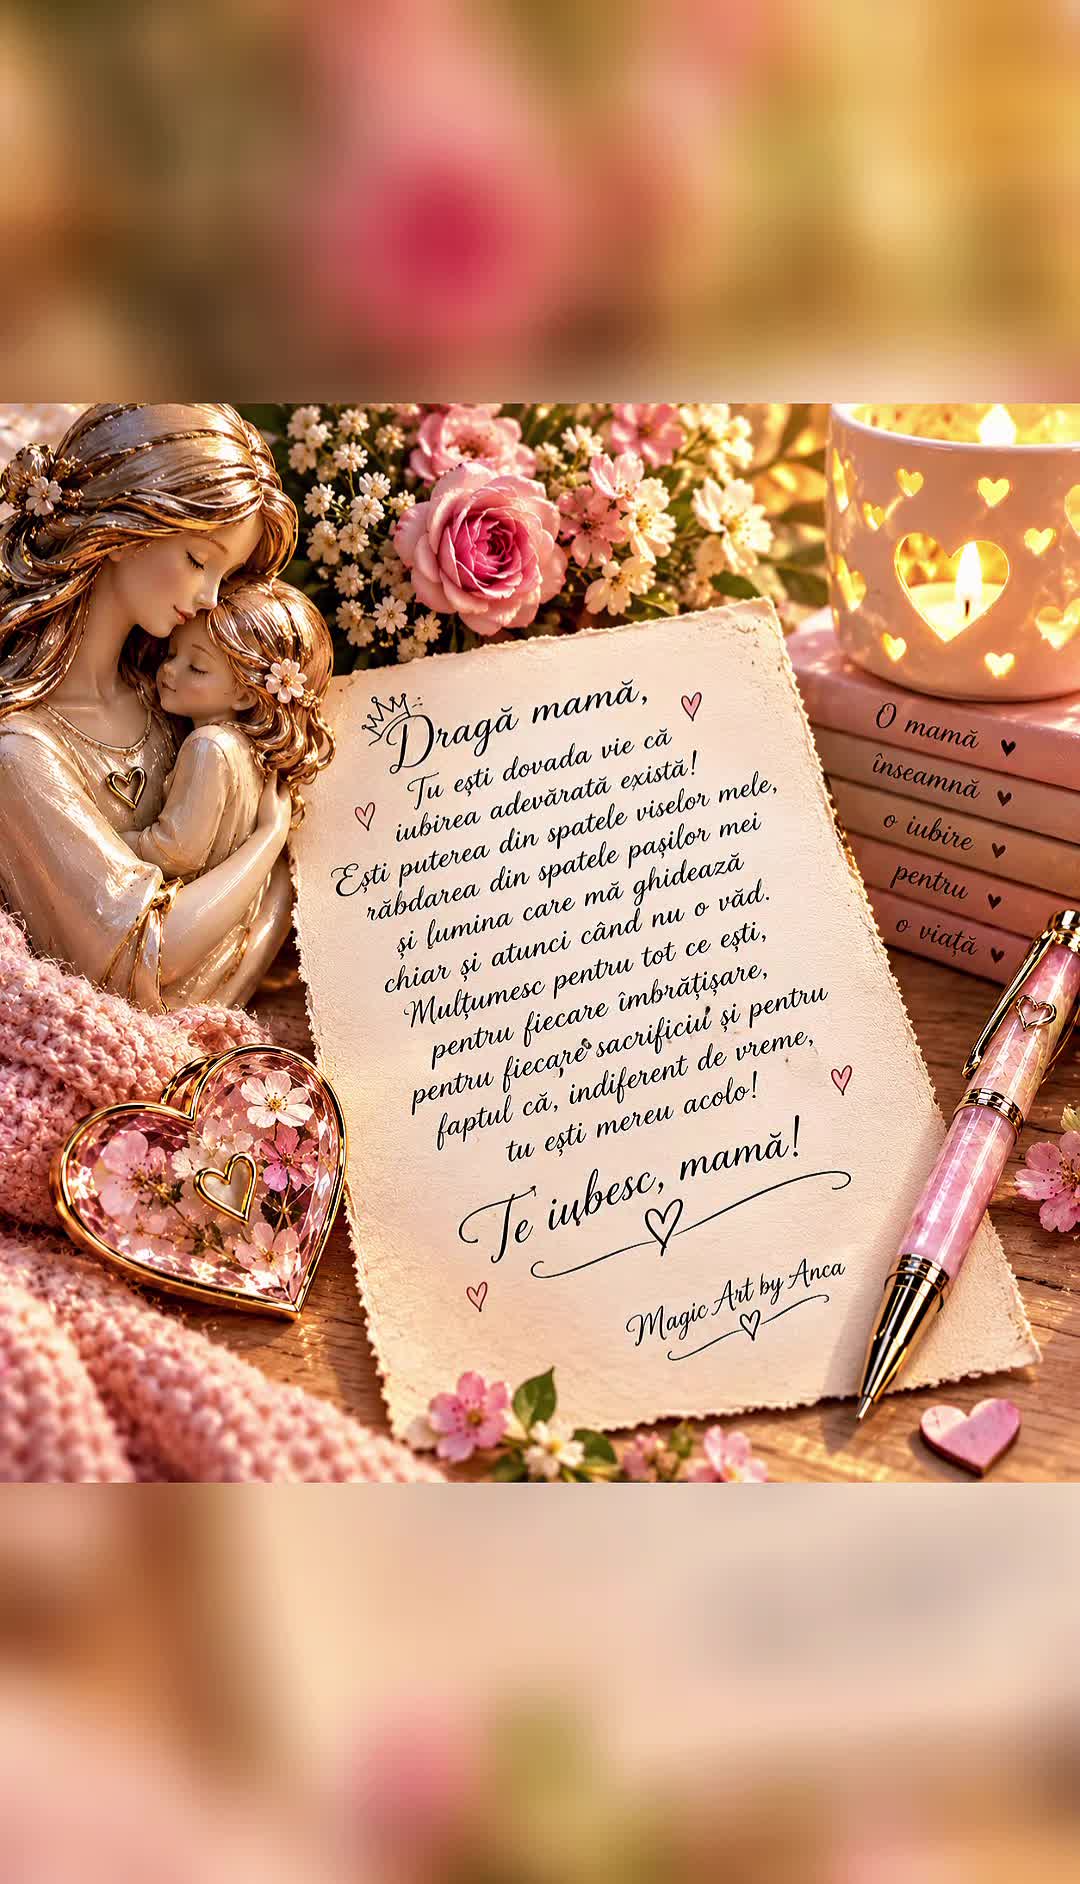 Dragă mamă,
Tu ești dovada vie că
iubirea adevărată există!
Ești puterea din spatele viselor mele,
răbdarea din spatele pașilor mei
și lumina care mă ghidează
chiar și atunci când nu o văd.
Mulțumesc pentru tot ce ești,
pentru fiecare îmbrățișare,
pentru fiecare sacrificiu și pentru
faptul că, indiferent de vreme,
tu ești mereu acolo!
Te iubesc, mamă!
Magic Art by Anca
O mamă
înseamnă
o iubire
pentru
o viață